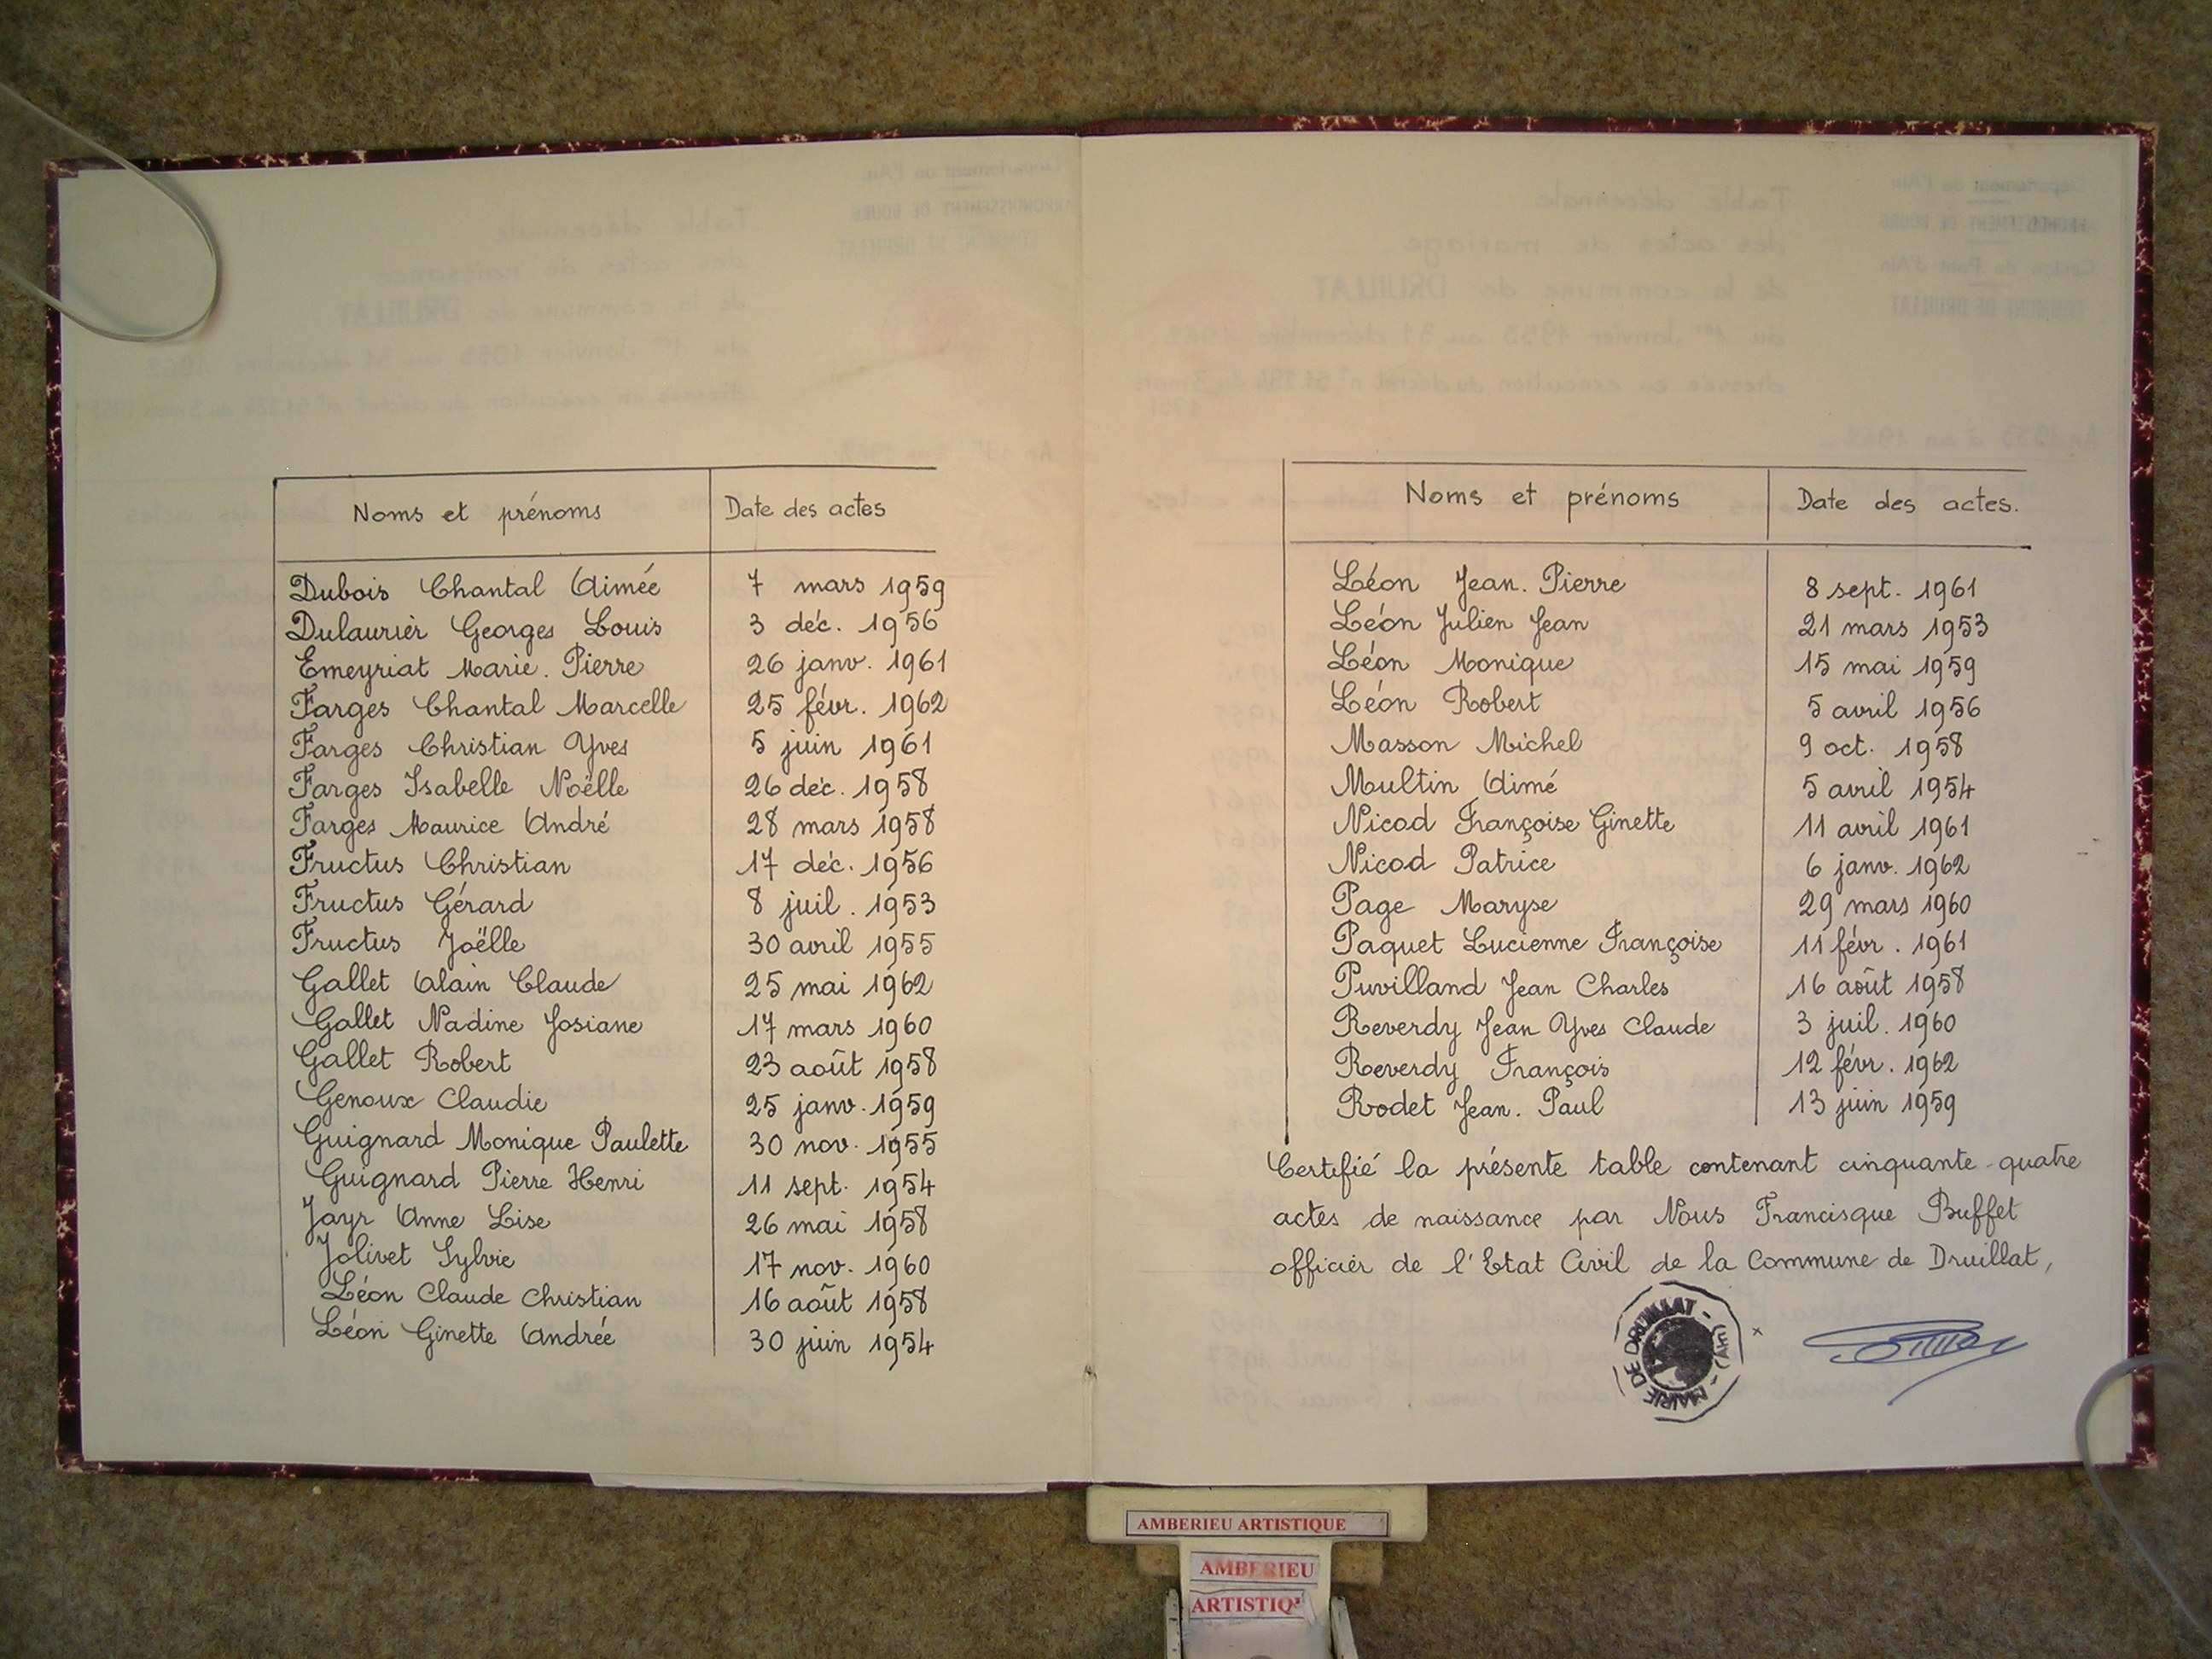 Noms et prénoms Date des actes
Dubois Chantal Aimée 7 mars 1959
Dulaurier Georges Louis 3 déc. 1956
Emeyriat Marie. Pierre 26 janv. 1961
Farges Chantal Marcelle 25 févr. 1962
Farges Christian Yves 5 juin 1961
Farges Isabelle Noëlle 26 déc. 1958
Farges Maurice André 28 mars 1958
Fructus Christian 17 déc. 1956
Fructus Gérard 8 juil. 1953
Fructus Joëlle 30 avril 1955
Gallet Alain Claude 25 mai 1962
Gallet Nadine Josiane 17 mars 1960
Gallet Robert 23 août 1958
Genoux Claudie 25 janv. 1959
Guignard Monique Paulette 30 nov. 1955
Guignard Pierre Henri 11 sept. 1954
Jayr Anne Lise 26 mai 1958
Jolivet Sylvie 17 nov. 1960
Léon Claude Christian 16 août 1958
Léon Ginette Andrée 30 juin 1954
Noms et prénoms Date des actes.
Léon Jean. Pierre 8 sept. 1961
Léon Julien Jean 21 mars 1953
Léon Monique 15 mai 1959
Léon Robert 5 avril 1956
Masson Michel 9 oct. 1958
Multin Aimé 5 avril 1954
Nicod Françoise Ginette 11 avril 1961
Nicod Patrice 6 janv. 1962
Page Maryse 29 mars 1960
Paquet Lucienne Françoise 11 févr. 1961
Puvilland Jean Charles 16 août 1958
Reverdy Jean Yves Claude 3 juil. 1960
Reverdy François 12 févr. 1962
Rodet Jean. Paul 13 juin 1959
Certifié la présente table contenant cinquante-quatre
actes de naissance par Nous Francisque Buffet
officier de l'Etat Civil de la Commune de Druillat,
MAIRIE DE DRUILLAT - (Ain) -
AMBERIEU ARTISTIQUE
AMBERIEU
ARTISTIQ